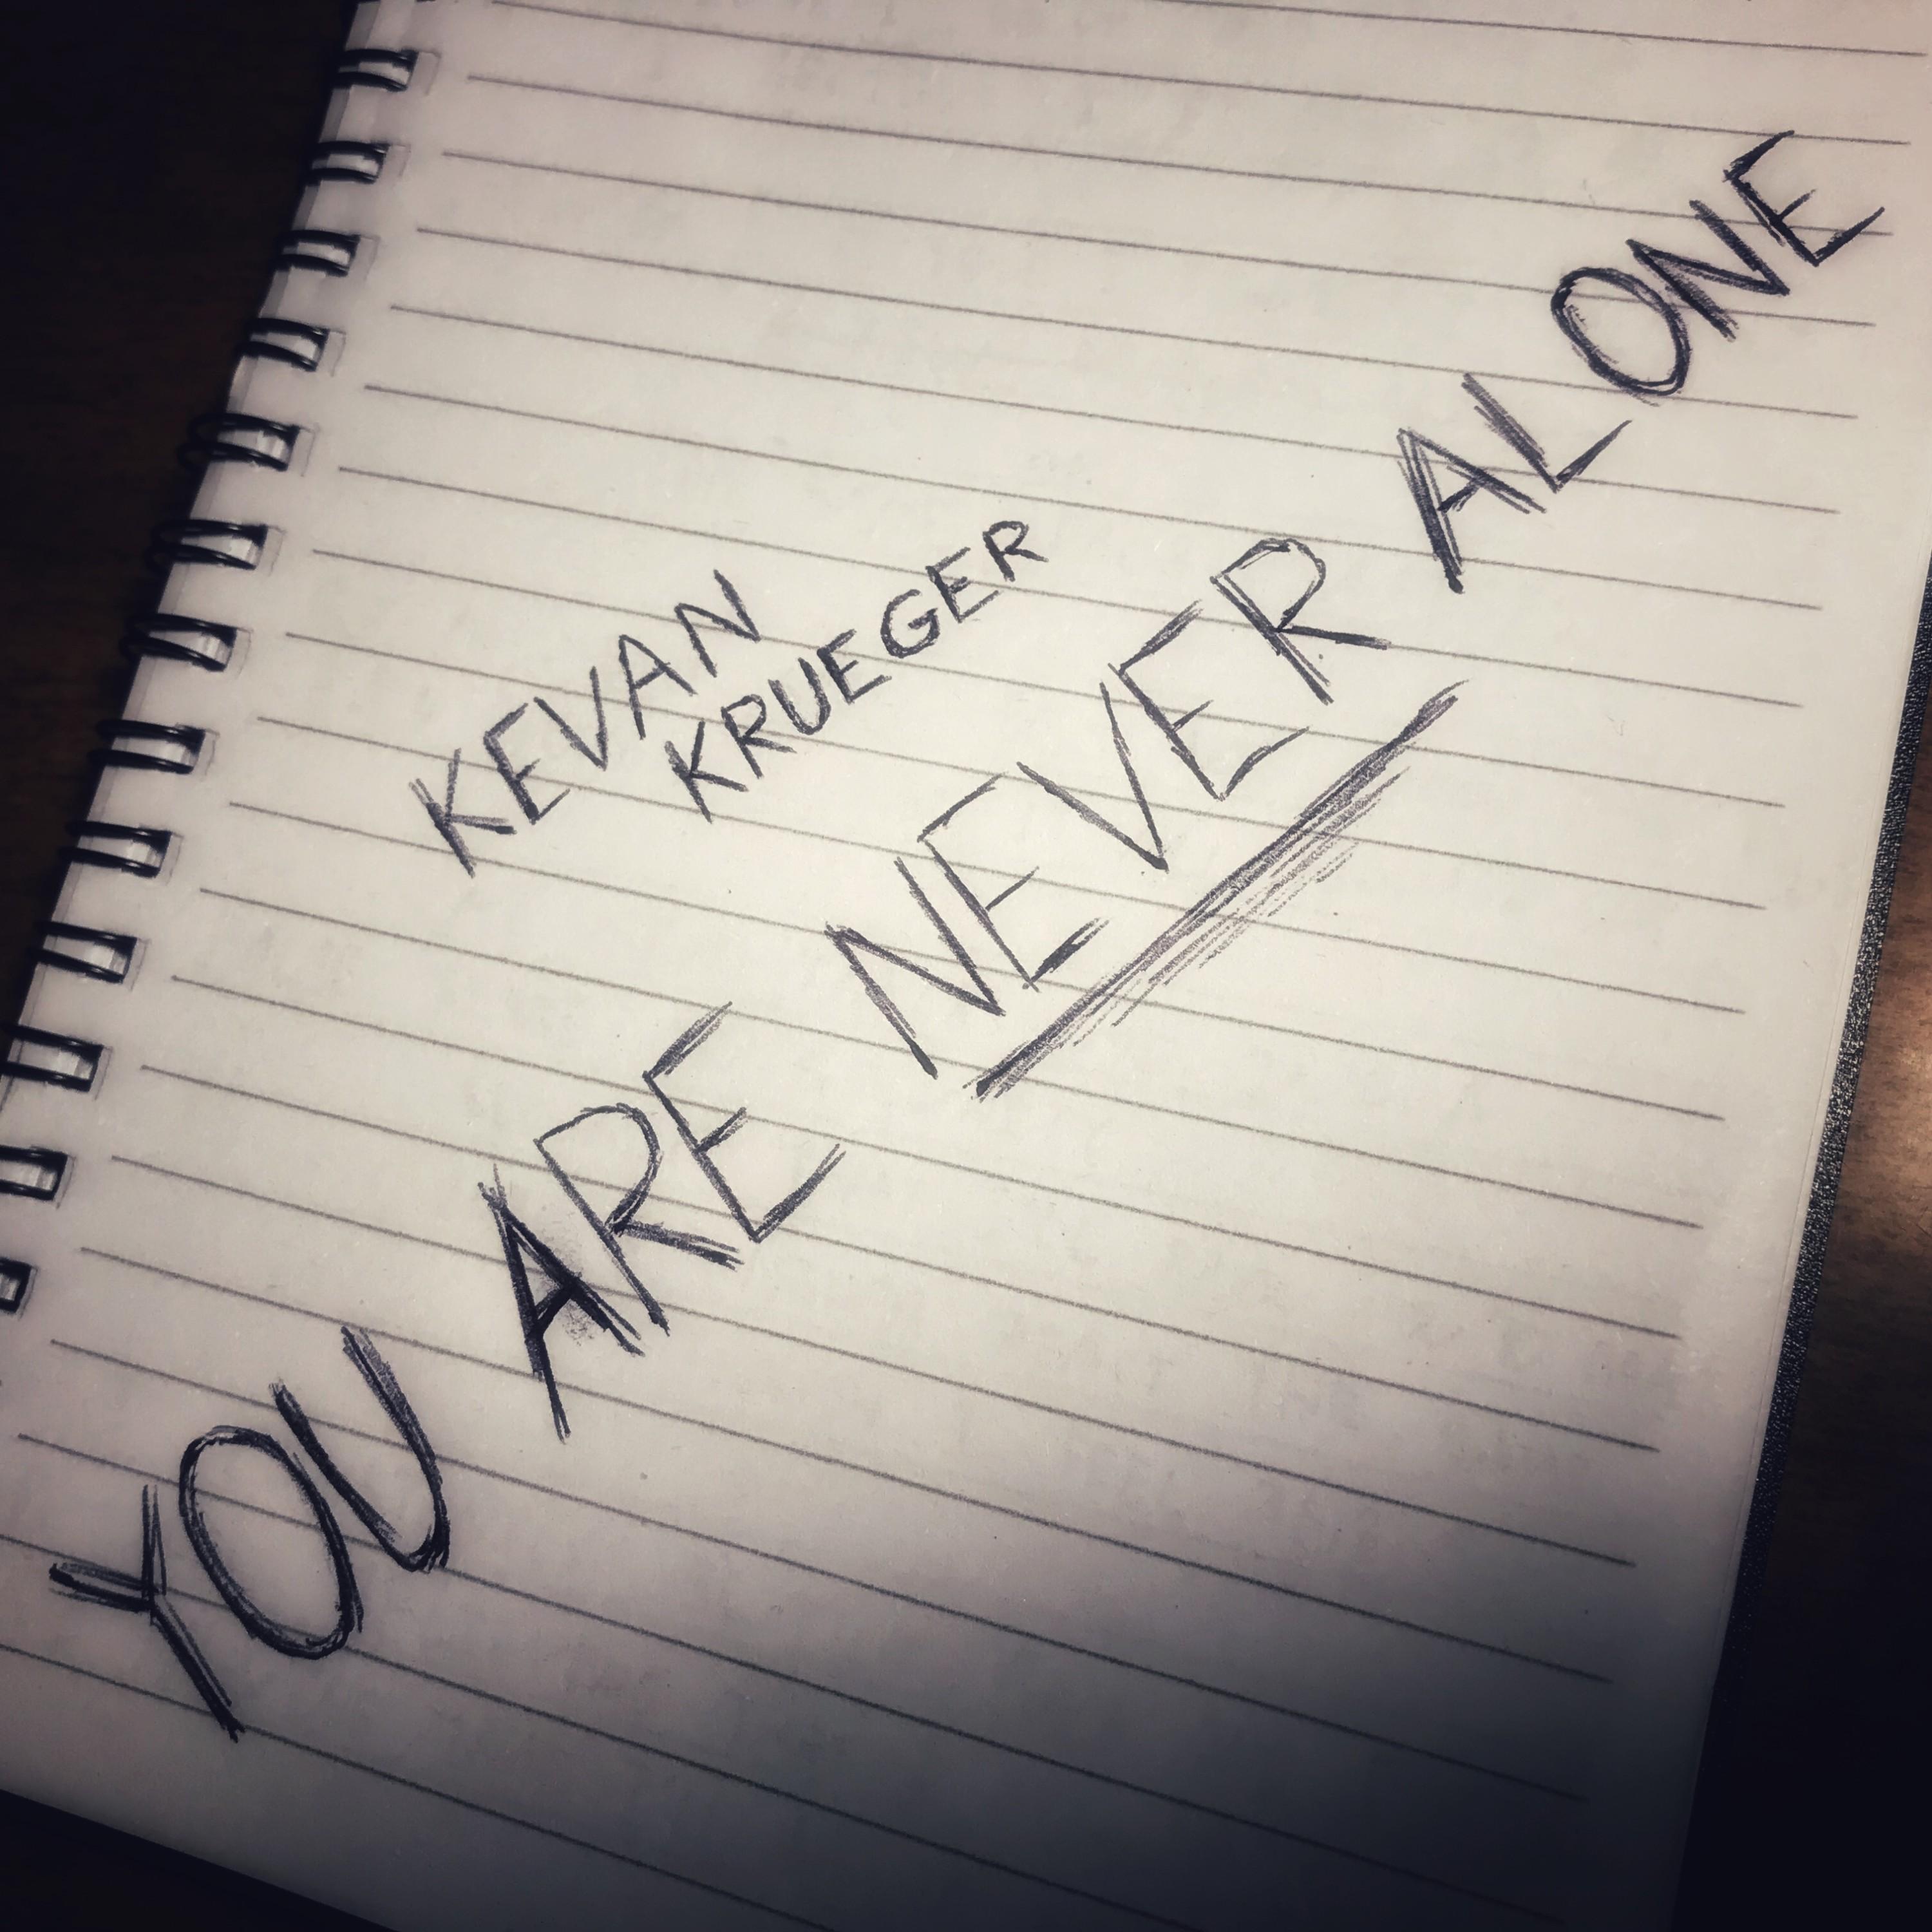 KEVAN
KRUEGER
YOU ARE NEVER ALONE